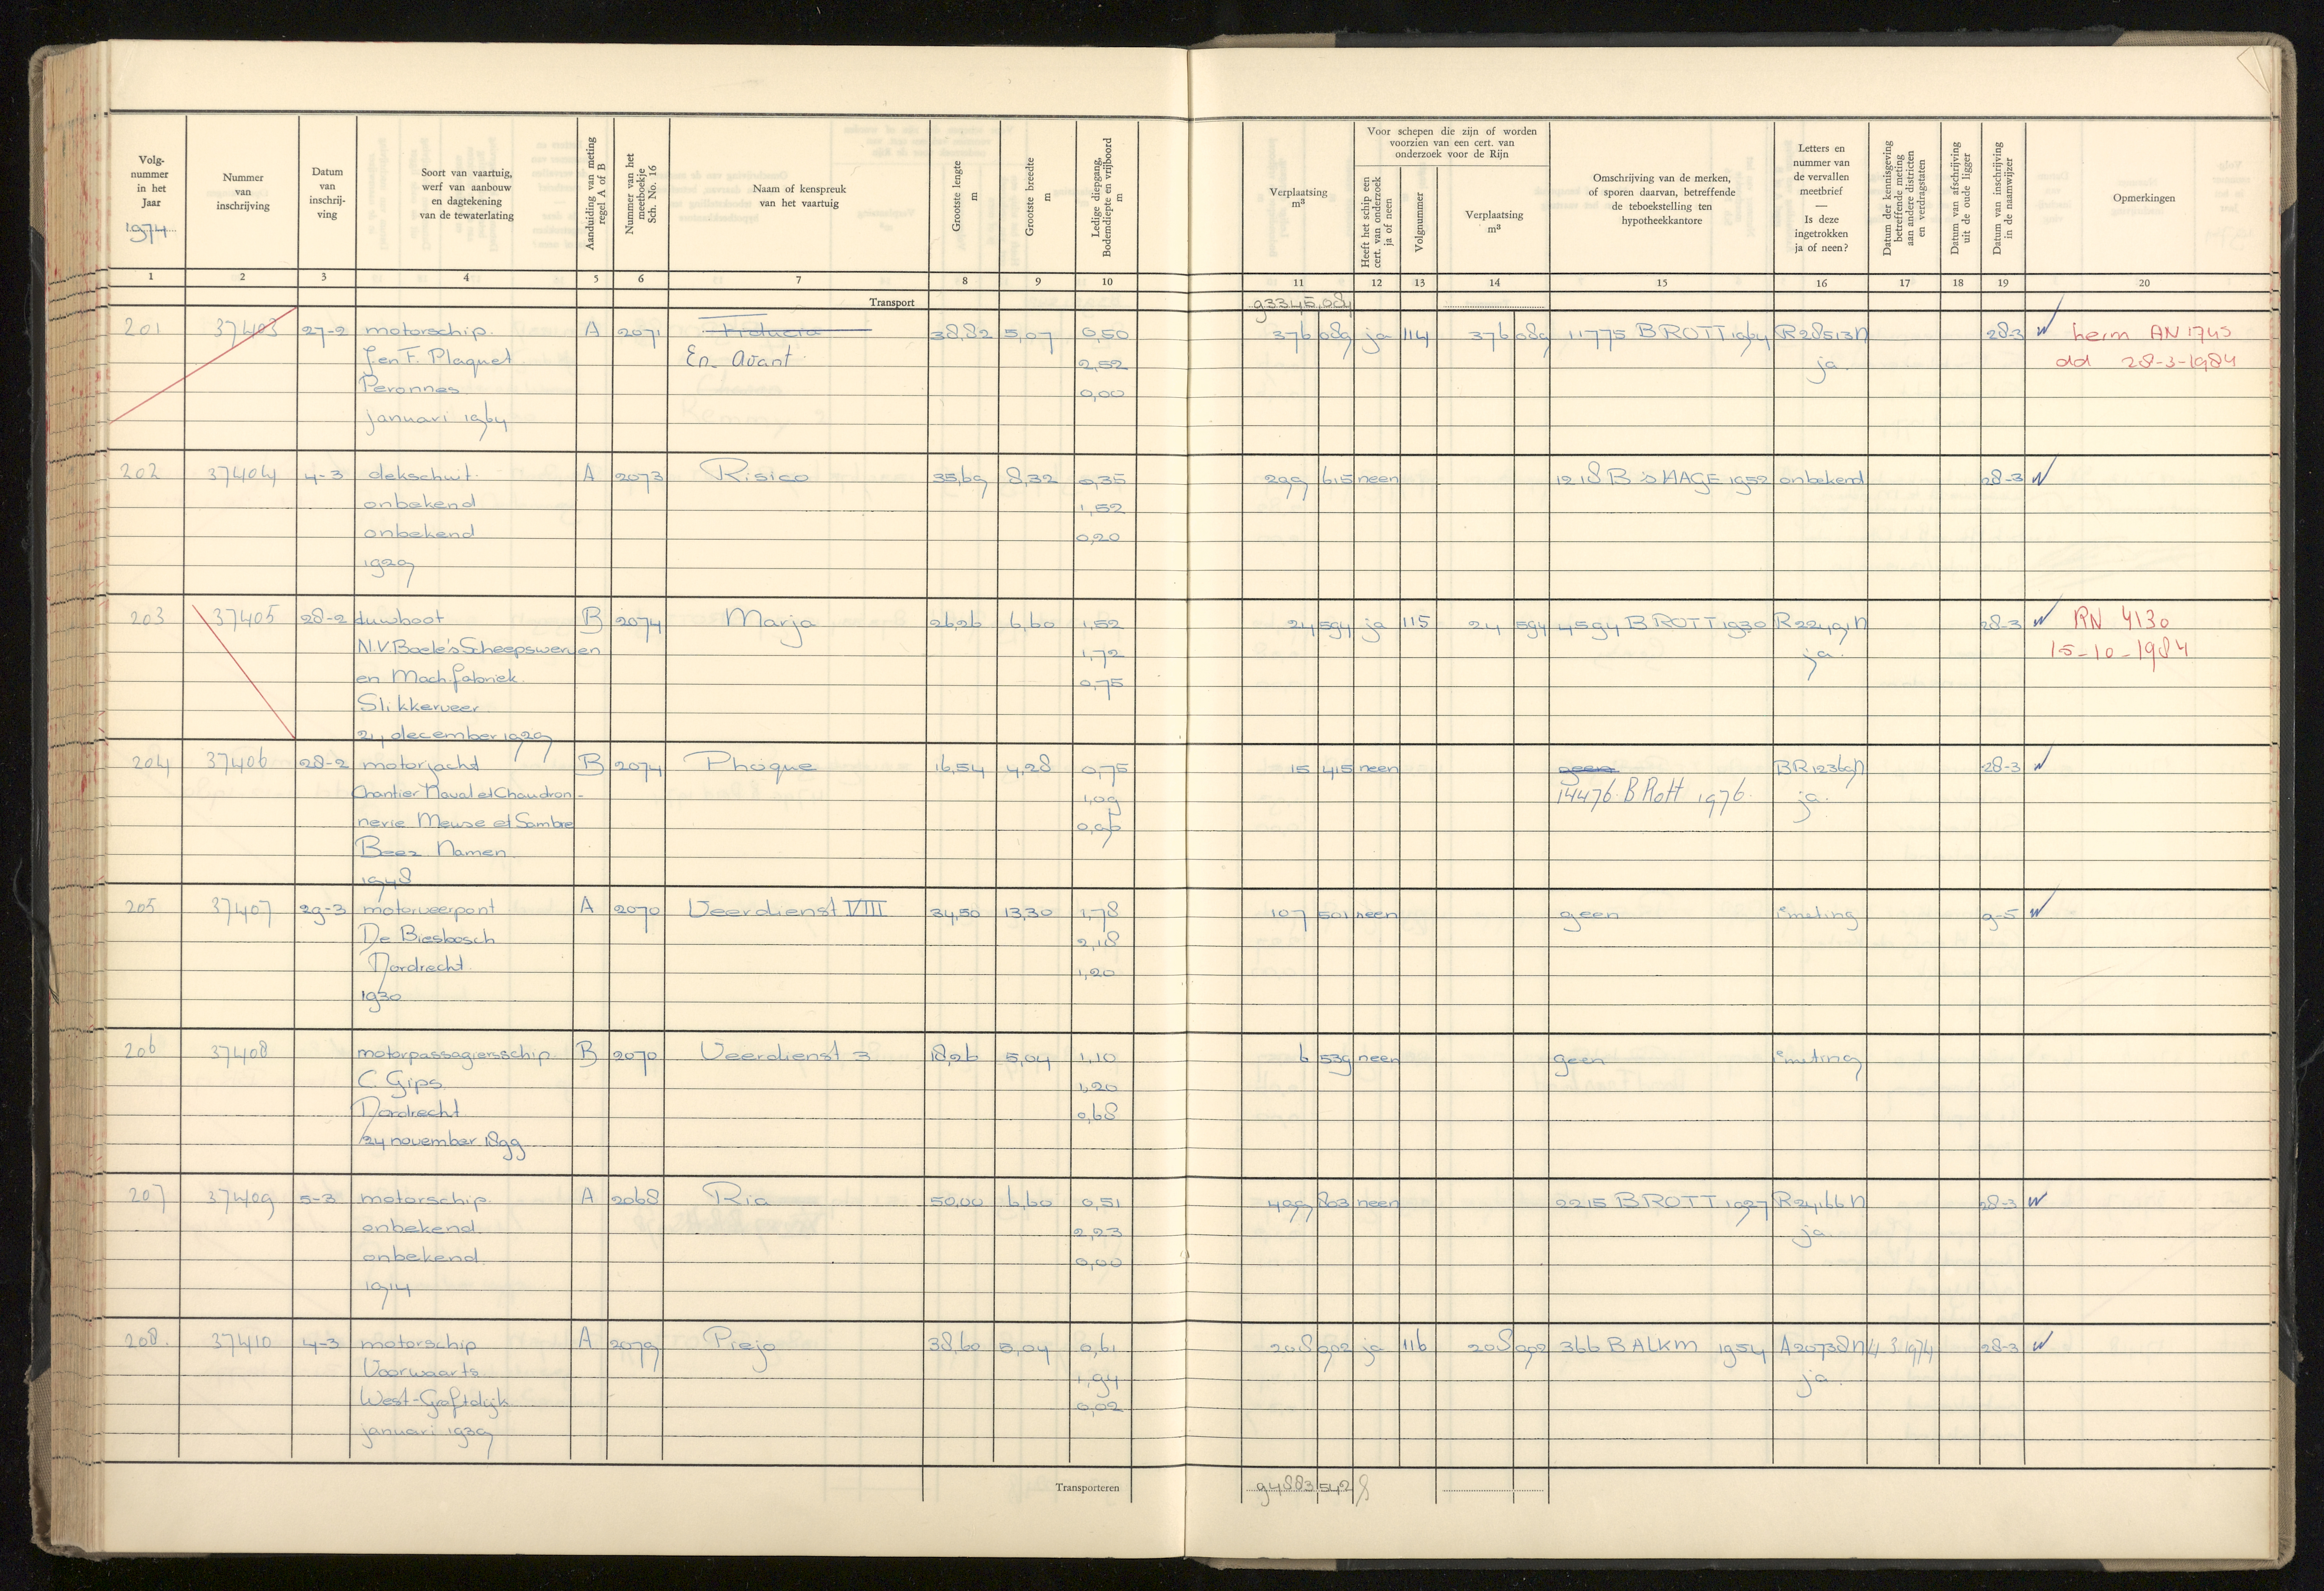 Volg-
nummer
in het
Jaar
1974
Nummer
van
inschrijving
Datum
van
inschrij-
ving
Soort van vaartuig,
werf van aanbouw
en dagtekening
van de tewaterlating
Aanduiding van meting
regel A of B
Nummer van het
meetboekje
Sch. No. 16
Naam of kenspreuk
van het vaartuig
Grootste lengte
m
Grootste breedte
m
Ledige diepgang,
Bodemdiepte en vrijboord
m
Verplaatsing
m³
Voor schepen die zijn of worden
voorzien van een cert. van
onderzoek voor de Rijn
Heeft het schip een
cert. van onderzoek
ja of neen
Volgnummer
Verplaatsing
m³
Omschrijving van de merken,
of sporen daarvan, betreffende
de teboekstelling ten
hypotheekkantore
Letters en
nummer van
de vervallen
meetbrief
—
Is deze
ingetrokken
ja of neen?
Datum der kennisgeving
betreffende meting
aan andere districten
en verdragstaten
Datum van afschrijving
uit de oude ligger
Datum van inschrijving
in de naamwijzer
Opmerkingen
1 2 3 4 5 6 7 8 9 10 11 12 13 14 15 16 17 18 19 20
Transport 93345,084
201 37403 27-2 motorschip A 2071 Fiducia 38,82 5,07 0,50 376 089 ja 114 376 089 11775 B ROTT 1964 R28513N 28-3 herm AN 1745
J. en F. Plaquet En Avant 2,52 ja. dd 28-3-1984
Peronnes 0,00
januari 1964
202 37404 4-3 dekschuit A 2073 Risico 35,69 8,32 0,35 299 615 neen 1218 B 's HAGE 1952 onbekend 28-3
onbekend 1,52
onbekend 0,20
1929
203 37405 28-2 duwboot B 2074 Marja 26,26 6,60 1,52 24 594 ja 115 24 594 4594 B ROTT 1930 R22491N 28-3 RN 4130
N.V. Boele's Scheepswerven 1,72 ja. 15-10-1984
en Mach.fabriek 0,75
Slikkerveer
24 december 1929
204 37406 28-2 motorjacht B 2074 Phoque 16,54 4,28 0,75 15 415 neen geen BR12369N 28-3
Chantier Naval et Chaudron- 1,09 14476 B Rott 1976 ja.
nerie Meuse et Sambre 0,96
Beez Namen
1948
205 37407 29-3 motorveerpont A 2070 Veerdienst VIII 34,50 13,30 1,78 107 501 neen geen 1e meting 9-5
De Biesbosch 2,18
Dordrecht 1,20
1930
206 37408 motorpassagiersschip B 2070 Veerdienst 3 18,26 5,04 1,10 6 539 neen geen 1e meting
C. Gips 1,20
Dordrecht 0,68
24 november 1899
207 37409 5-3 motorschip A 2068 Ria 50,00 6,60 0,51 499 803 neen 2215 B ROTT 1927 R24166N 28-3
onbekend 2,23 ja
onbekend 0,00
1914
208. 37410 4-3 motorschip A 2079 Piejo 38,60 5,04 0,61 208 902 ja 116 208 902 366 B ALKM 1954 A20738N 4-3-1974 28-3
Voorwaarts 1,94 ja.
West-Graftdijk 0,02
januari 1939
Transporteren 94883 542 8